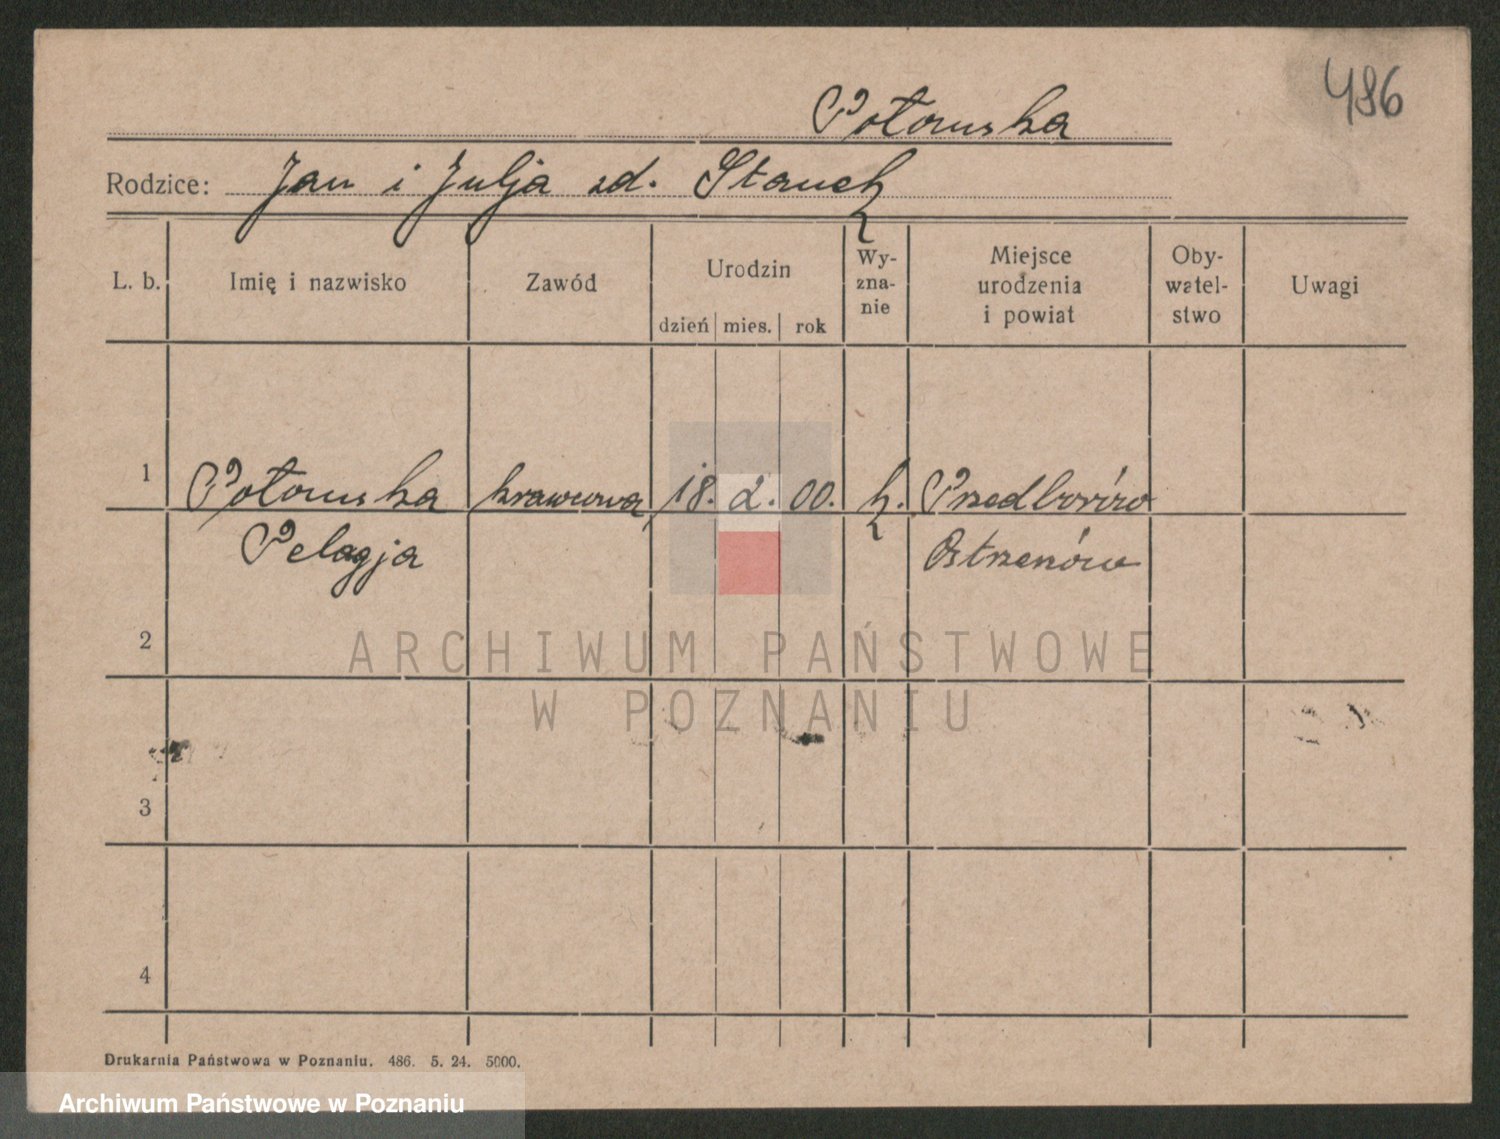 486
Potomska
Rodzice: Jan i Julja zd. Stauch
L. b.
Imię i nazwisko
Zawód
Urodzin
dzień mies. rok
Wy-
zna-
nie
Miejsce
urodzenia
i powiat
Oby-
watel-
stwo
Uwagi
1 Potomska krawcowa 18. 2. 00. k. Przedborów
Pelagja Ostrzeszów
2
ARCHIWUM PAŃSTWOWE
W POZNANIU
3
4
Drukarnia Państwowa w Poznaniu. 486. 5. 24. 5000.
Archiwum Państwowe w Poznaniu